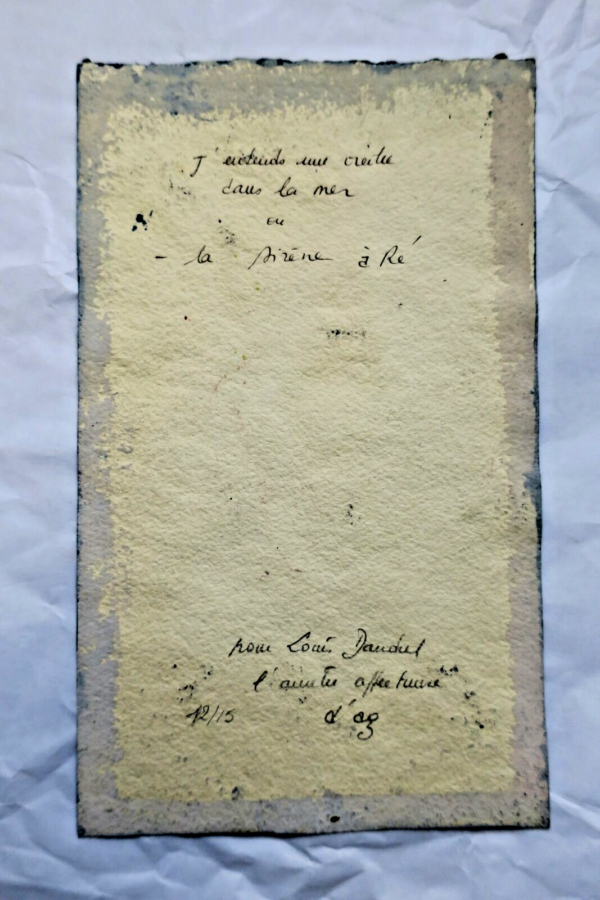 J'entends une
dans la mer
ou
- la sirène à Ré
pour Louis
l'amitié affectueuse
12/15 d'ag